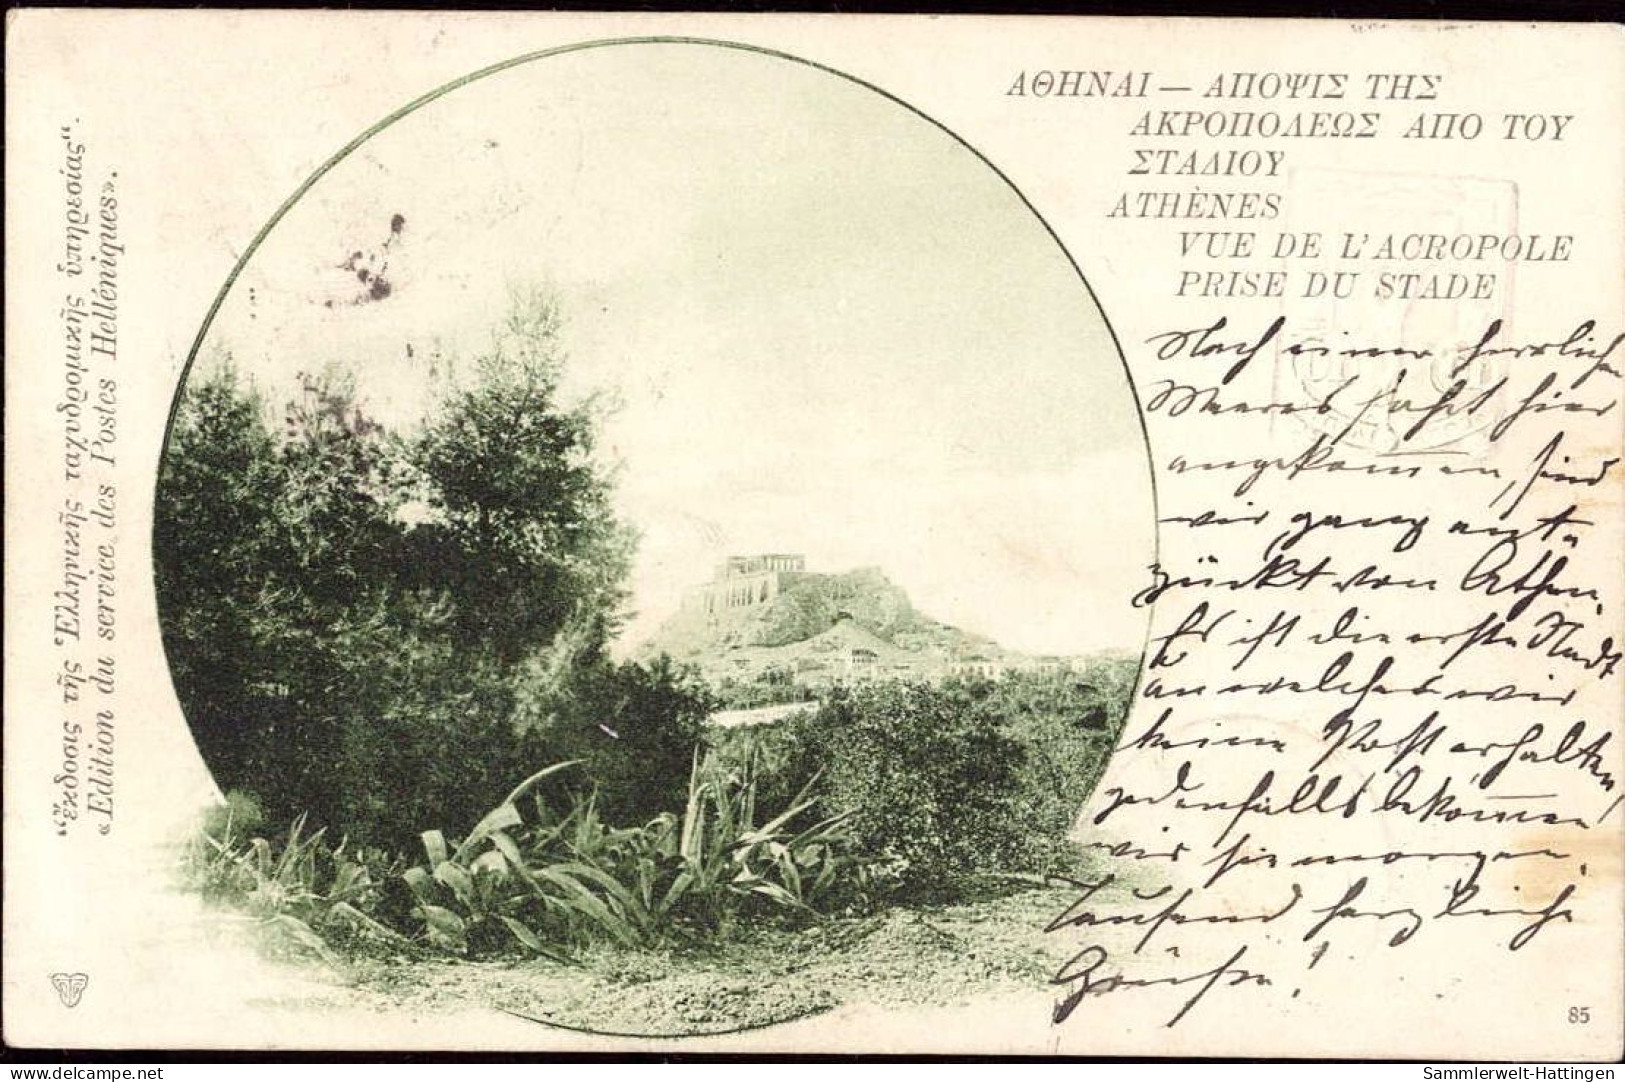 ΑΘΗΝΑΙ — ΑΠΟΨΙΣ ΤΗΣ
ΑΚΡΟΠΟΛΕΩΣ ΑΠΟ ΤΟΥ
ΣΤΑΔΙΟΥ
ATHÈNES
VUE DE L'ACROPOLE
PRISE DU STADE
Nach einer herrlichen
Meeresfahrt hier
angekommen, sind
wir ganz ent-
zückt von Athen.
Es ist die erste Stadt
in welcher wir
keine Post erhalten,
jedenfalls bekommen
wir sie morgen.
Tausend herzliche
Grüsse!
„Ἔκδοσις τῆς Ἑλληνικῆς ταχυδρομικῆς ὑπηρεσίας“.
«Edition du service des Postes Helléniques».
85
www.delcampe.net
Sammlerwelt-Hattingen